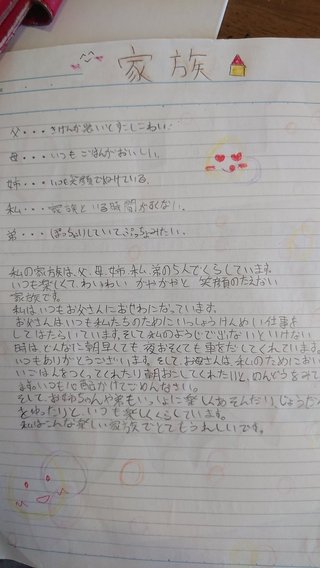 家族
父・・・きげんが悪いとすこしこわい。
母・・・いつもごはんがおいしい。
姉・・・いつも笑顔でぬけている。
私・・・家族といる時間がすくない。
弟・・・ぽっちゃりしていてぶっちょみたい。
私の家族は、父、母、姉、私、弟の5人でくらしています。
いつも楽しくてわいわい がやがやと 笑顔のたえない
家族です。
私はいつもお父さんにおせわになっています。
お父さんはいつも私たちのためにいっしょうけんめい仕事を
してはたらいています。そして私のようじで出ないといけない
時はどんなに朝早くても 夜おそくても 車をだしてくれています。
いつもありがとうございます。そしてお母さんは、私のためにおいし
いごはんをつくってくれたり朝おこしてくれたりと、めんどうをみて
ます。いつも心配かけてごめんなさい。
そして、お姉ちゃんや弟もいっしょに楽しくあそんだりじょうだん
をゆったりと、いつも楽しくくらしています。
私はこんな楽しい家族でとてもうれしいです。